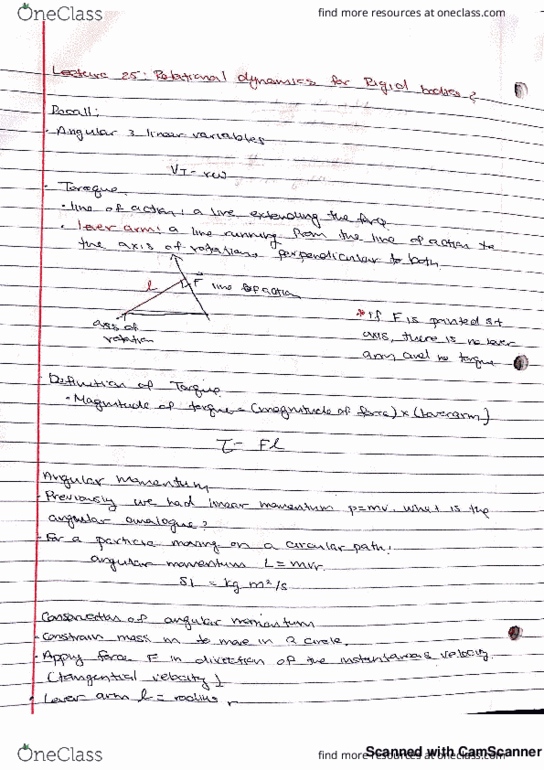 OneClass
find more resources at oneclass.com
Lecture 25: Rotational dynamics for Rigid bodies
Recall:
· Angular 3 linear variables
VT = rω
· Torque
· line of action: a line extending the force
· lever arm: a line running from the line of action to
the axis of rotation, perpendicular to both
l F line of action
axis of
rotation
* if F is pointed at
axis, there is no lever
arm and no torque
· Definition of Torque
· Magnitude of torque = (magnitude of force) x (lever arm)
τ = Fl
Angular Momentum
· Previously we had linear momentum p=mv. what is the
angular analogue?
· For a particle moving on a circular path:
angular momentum L = mvr
SI = kg m²/s
Conservation of angular momentum
· Constrain mass m to move in a circle.
· Apply force F in direction of the instantaneous velocity
(tangential velocity)
· Lever arm l = radius r
OneClass
find more resources at oneclass.com
Scanned with CamScanner